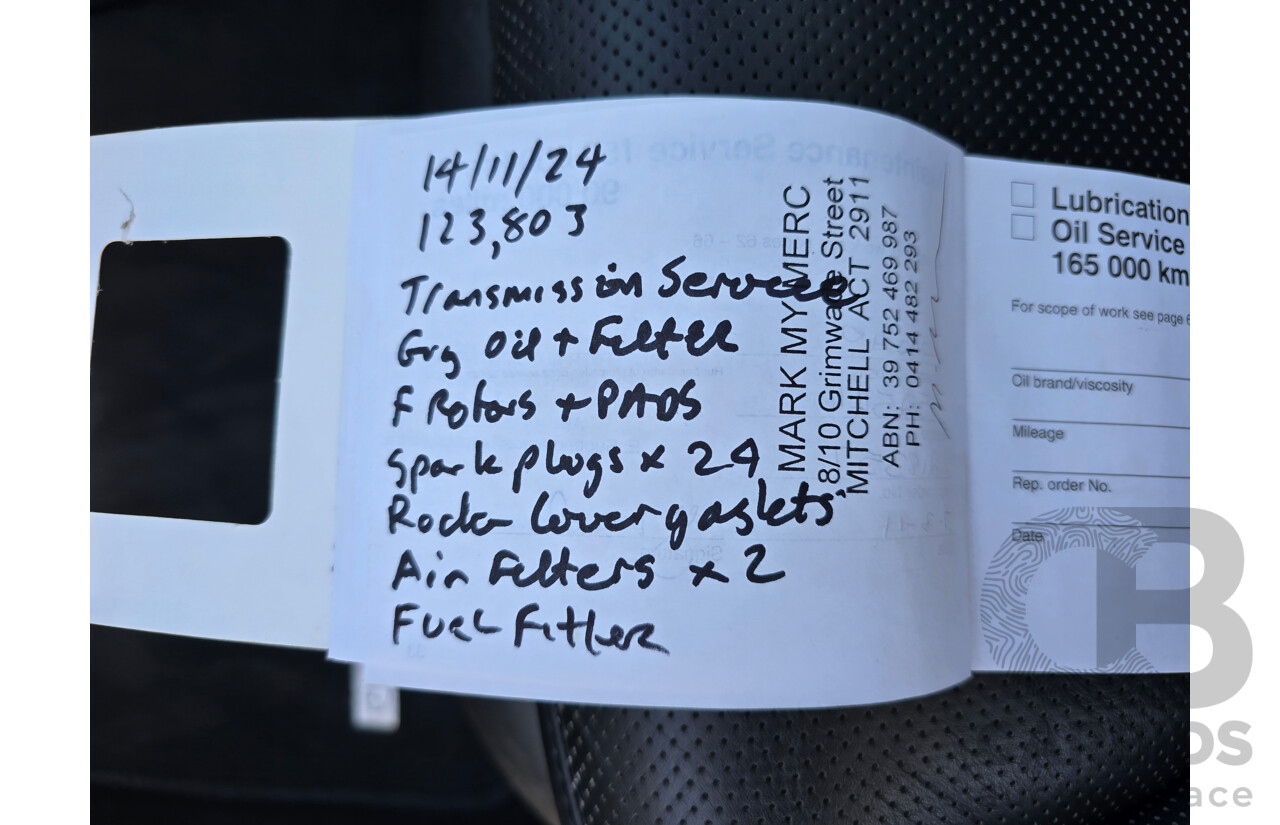 14/11/24
123,803
Transmission Service
Grg Oil + Filter
F Rotors + PADS
Spark plugs x 24
Rocker Cover gaskets
Air Filters x 2
Fuel Filter
MARK MY MERC
8/10 Grimwade Street
MITCHELL ACT 2911
ABN: 39 752 469 987
PH: 0414 482 293
Lubrication
Oil Service
165 000 km
For scope of work see page 6
Oil brand/viscosity
Mileage
Rep. order No.
Date